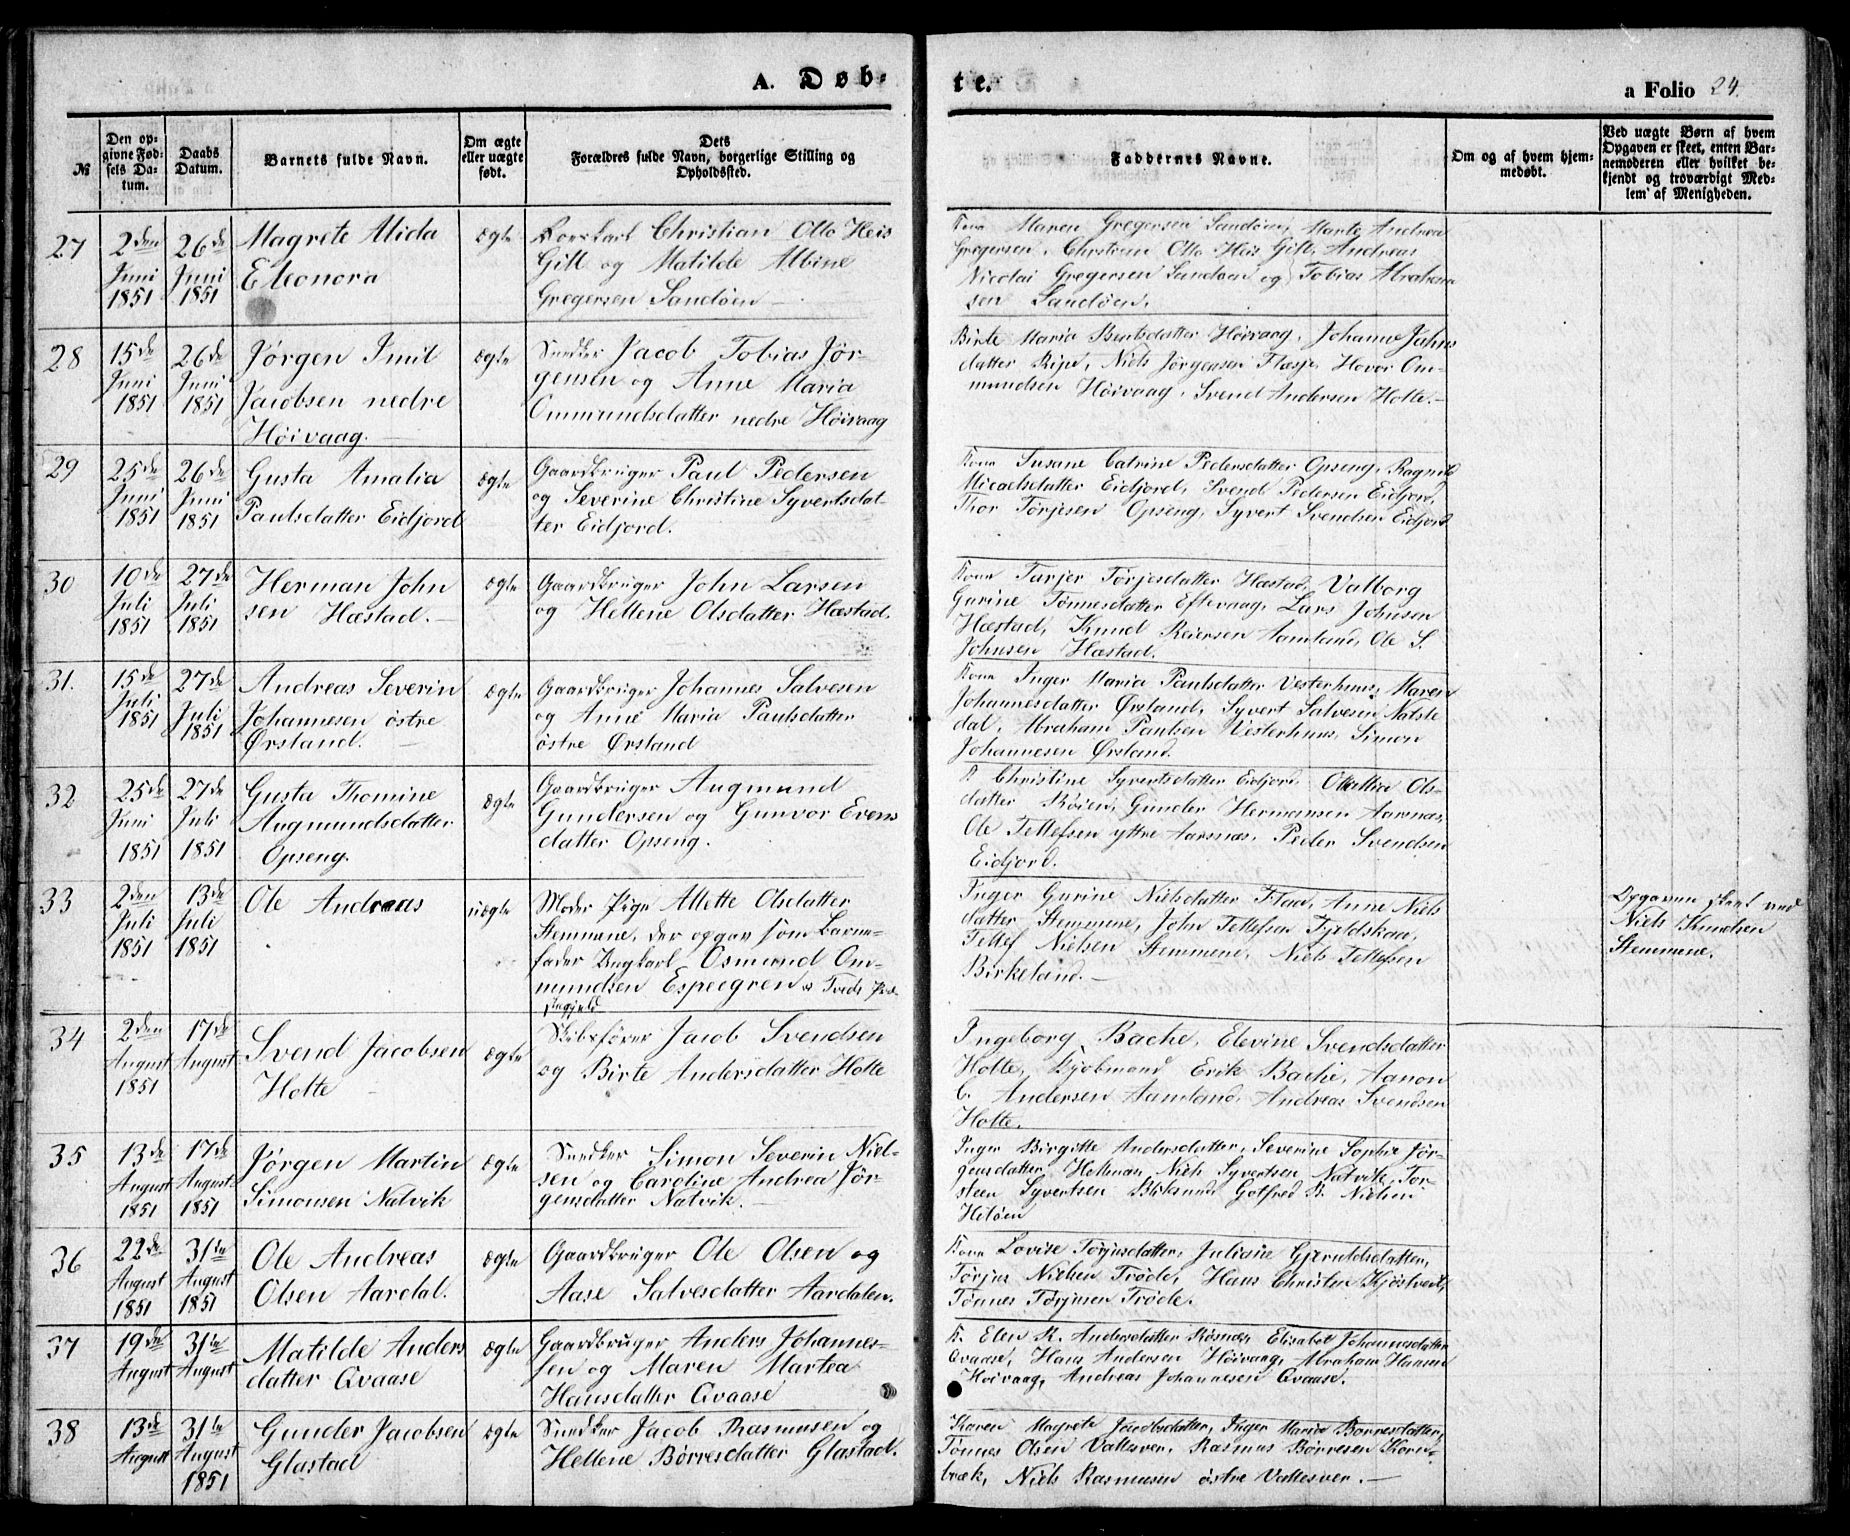 A. Døb-
te.
a Folio 24.
№
Den op-
givne Fød-
sels Da-
tum.
Daabs
Datum.
Barnets fulde Navn.
Om ægte
eller uægte
født.
Dets
Forældres fulde Navn, borgerlige Stilling og
Opholdssted.
Faddernes Navne.
Om og af hvem hjem-
medøbt.
Ved uægte Børn af hvem
Opgaven er skeet, enten Bar-
nemoderen eller hvilket be-
kjendt og troværdigt Med-
lem af Menigheden.
27
2den
Juni
1851
26de
Juni
1851
Magrete Alida
Eleonora
ægte
Christian Otto Heis
Gill og Matilde Albine
Gregersen Sandøen
Kone Maren Gregersen Sandøen, Marte Andrea
Gregersen, Christian Otto Heis Gill, Andreas
Nicolai Gregersen Sandøen og Tobias Abraham
sen Sandøen.
28
15de
Juni
1851
26de
Juni
1851
Jørgen Imil
Jacobsen nedre
Høivaag.
ægte
Snedker Jacob Tobias Jør-
gensen og Anne Maria
Ommundsdatter nedre Høivaag
Birte Maria Berntsdatter Høivaag, Johanne Jahns
datter Ribe, Niels Jørgensen Flasje, Hovor Om-
mundsen Høivaag, Svend Andersen Holte.
29
25de
Juni
1851
26de
Juni
1851
Gusta Amalia
Paulsdatter Eidjord
ægte
Gaardbruger Paul Pedersen
og Severine Christine Syvertsdat-
ter Eidjord.
Kone Susane Catrine Pedersdatter Opseng, Ragnild
Micaelsdatter Eidjord, Svend Pedersen Eidjord,
Thor Tørjesen Opseng, Syvert Svendsen Eidjord
30
10de
Juli
1851
27de
Juli
1851
Herman John
sen Hæstad.
ægte
Gaardbruger John Larsen
og Hellene Olsdatter Hæstad.
Kone Tarjer Tørjesdatter Hæstad, Valborg
Gurine Tønnesdatter Eftevaag, Lars Johnsen
Hæstad, Knud Reiersen Aamland, Ole S.
Johnsen Hæstad.
31.
15de
Juli
1851
27de
Juli
1851
Andreas Severin
Johannesen østre
Ørsland.
ægte
Gaardbruger Johannes Salvesen
og Anne Maria Paulsdatter
østre Ørsland
Kone Inger Maria Paulsdatter Vesterhuus, Maren
Johannesdatter Ørsland, Syvert Salvesen Natste
dal, Abraham Paulsen Vesterhuus, Simon
Johannesen Ørsland.
32
25de
Juni
1851
27de
Juli
1851
Gusta Thomine
Augmundsdatter
Opseng.
ægte
Gaardbruger Augmund
Gundersen og Gunvor Evens
datter Opseng.
K. Christine Syvertsdatter Eidjord, Ols-
datter Røien, Gunder Hermansen Aarsnæs,
Ole Tellefsen yttre Aarsnæs, Peder Svendsen
Eidjord.
33
2den
Juli
1851
13de
Juli
1851
Ole Andreas
uægte
Moder Pige Allette Olsdatter
Stemmene, der opgav som Barne-
fader Ungkarl Osmund Om-
mundsen Espeegren
Inger Gurine Nielsdatter Flaa, Anne Niels
datter Stemmene, John Tellefsen Fjeldskaa,
Tellef Nielsen Stemmene, Niels Tellefsen
Birkeland.
Opgaven skeet ved
Niels Knudsen
Stemmene.
34
2den
August
1851
17de
August
Svend Jacobsen
Holte
ægte
Skibsfører Jacob Svendsen
og Birte Andersdatter Holte
Ingeborg Bache, Elevine Svendsdatter
Holte, Kjøbmand Erik Bache, Aanon
C. Andersen Aamland, Andreas Svendsen
Holte.
35
13de
August
1851
17de
August
1851
Jørgen Martin
Simonsen Natvik
ægte
Snedker Simon Severin Niel-
sen og Caroline Andrea Jør-
gensdatter Natvik.
Inger Birgitte Andersdatter, Severine Sophie Jør-
gensdatter, Niels Syvertsen Natvik, Tor-
steen Syvertsen Gotfred B. Nielsen
36
22de
August
1851
31te
August
1851
Ole Andreas
Olsen Aardal.
ægte
Gaardbruger Ole Olsen og
Aase Salvesdatter Aardalen.
Kone Lovise Tørjusdatter, Juliane Gjerulsdatter,
Tørjus Nielsen Trøde, Hans Christen Kjøstvedt,
Tønnes Tørjusen Trøde.
37
19de
August
31te
August
Matilde Anders
datter Qvaase
ægte
Gaardbruger Anders Johannes-
sen og Maren Martea
Hansdatter Qvaase
K. Elen K. Andersdatter Røsnæs, Elisabet Johannesdatter
Qvaase, Hans Andersen Høivaag, Abraham Hansen
Høivaag, Andreas Johannesen Qvaase.
38
13de
August
31te
August
1851
Gunder Jacobsen
Glastad
ægte
Snedker Jacob Rasmusen og
Hellene Børresdatter Glastad.
Karen Magrete Jacobsdatter, Inger Maria Børresdatter,
Tønnes Olsen Vallesver, Rasmus Børresen Korn-
bræk, Niels Rasmusen østre Vallesver.